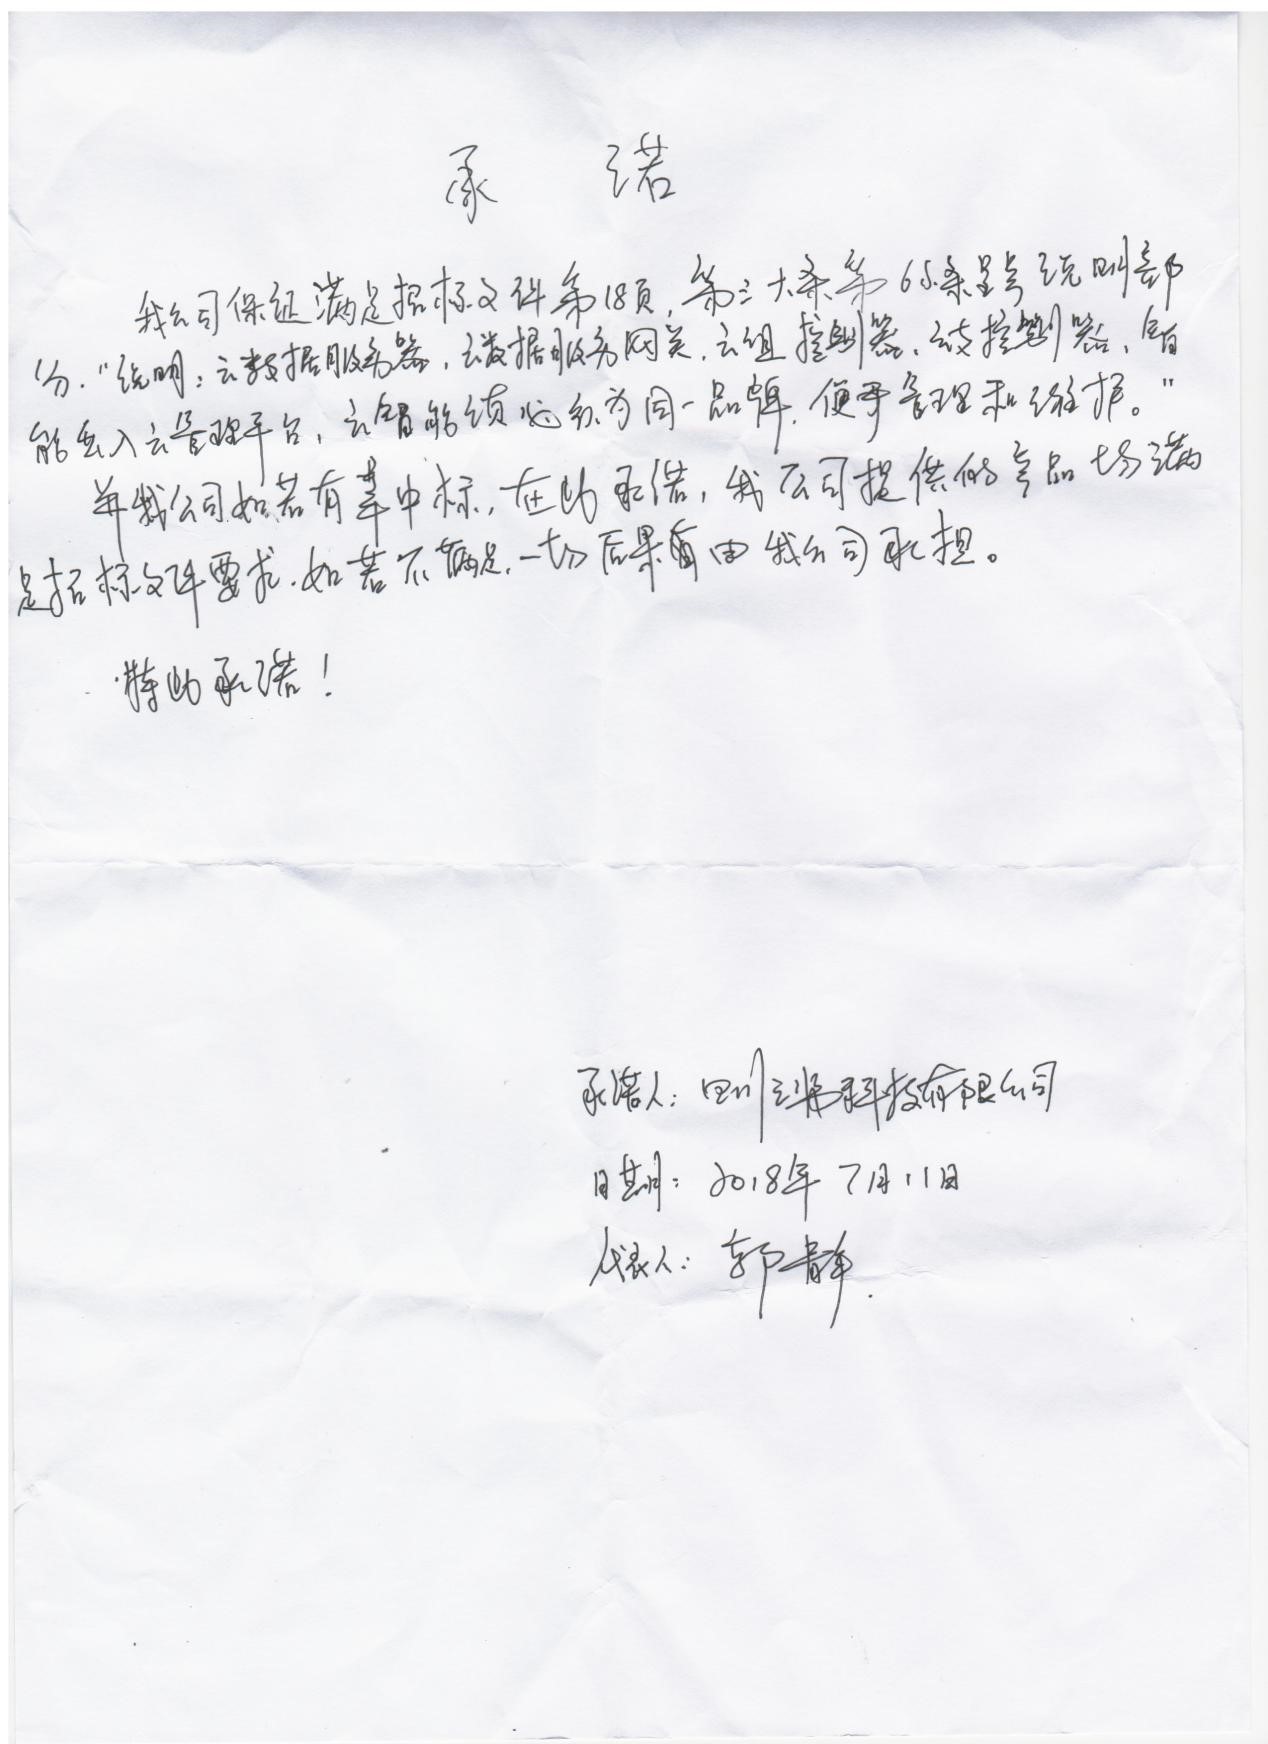 承 诺
我公司保证满足招标文件第18页,第三大条第65条星号说明部
分."说明:云数据服务器,云数据服务网关,云组控制器,云支控制器,智
能出入云管理平台,云智能锁必须为同一品牌,便于管理和维护。"
并我公司如若有幸中标,在此承诺,我公司提供的产品均满
足招标文件要求.如若不满足,一切后果自由我公司承担。
特此承诺!
承诺人:四川 科技有限公司
日期:2018年7月11日
代表人:郭静